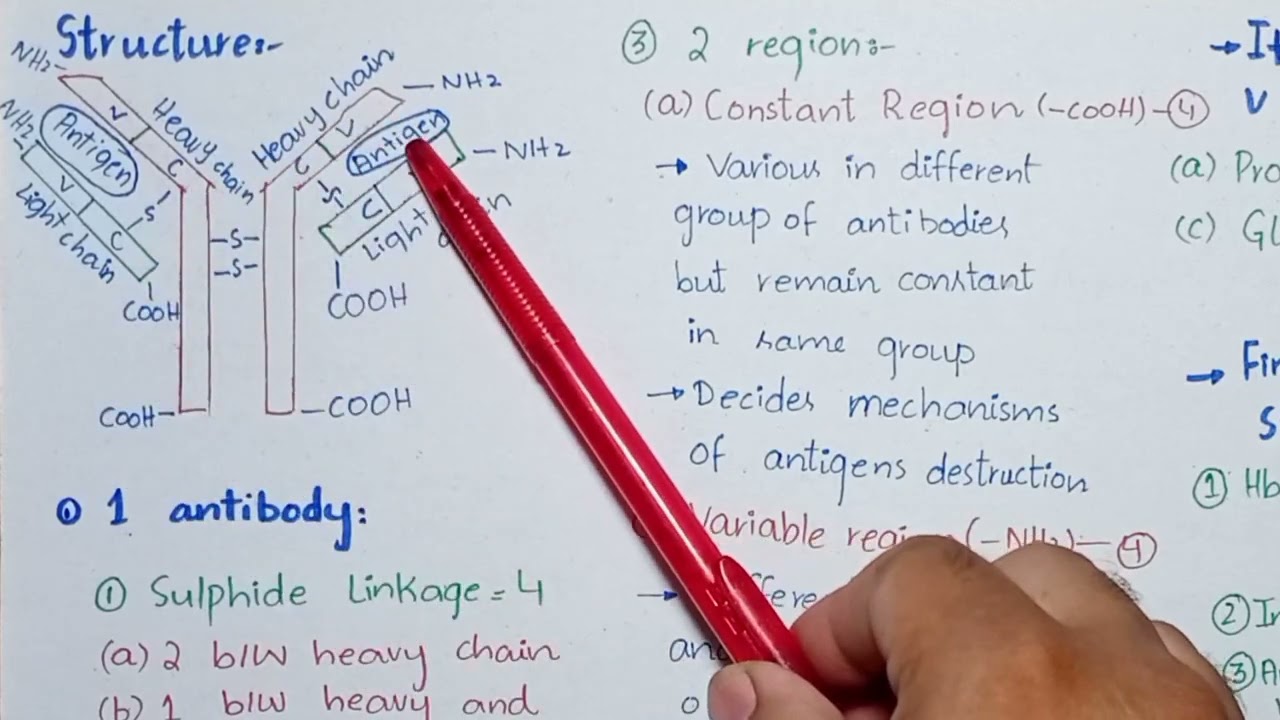 Structure:-
NH2-
Heavy chain
V
C
Antigen
NH2-
V
C
Light chain
S
COOH
COOH-
-S-
-S-
Heavy chain
-NH2
V
C
Antigen
-NH2
S
C
Light
COOH
-COOH
1 antibody:
① Sulphide Linkage = 4
(a) 2 b/w heavy chain
(b) 1 b/w heavy and
③ 2 region:-
(a) Constant Region (-COOH)-④
→ Various in different
group of antibodies
but remain constant
in same group
→ Decides mechanisms
of antigens destruction
Variable (-NH2)-④
→
→ It
V
(a) Pro
(c) Gl
→ Fir
S
① Hb
② In
③ A